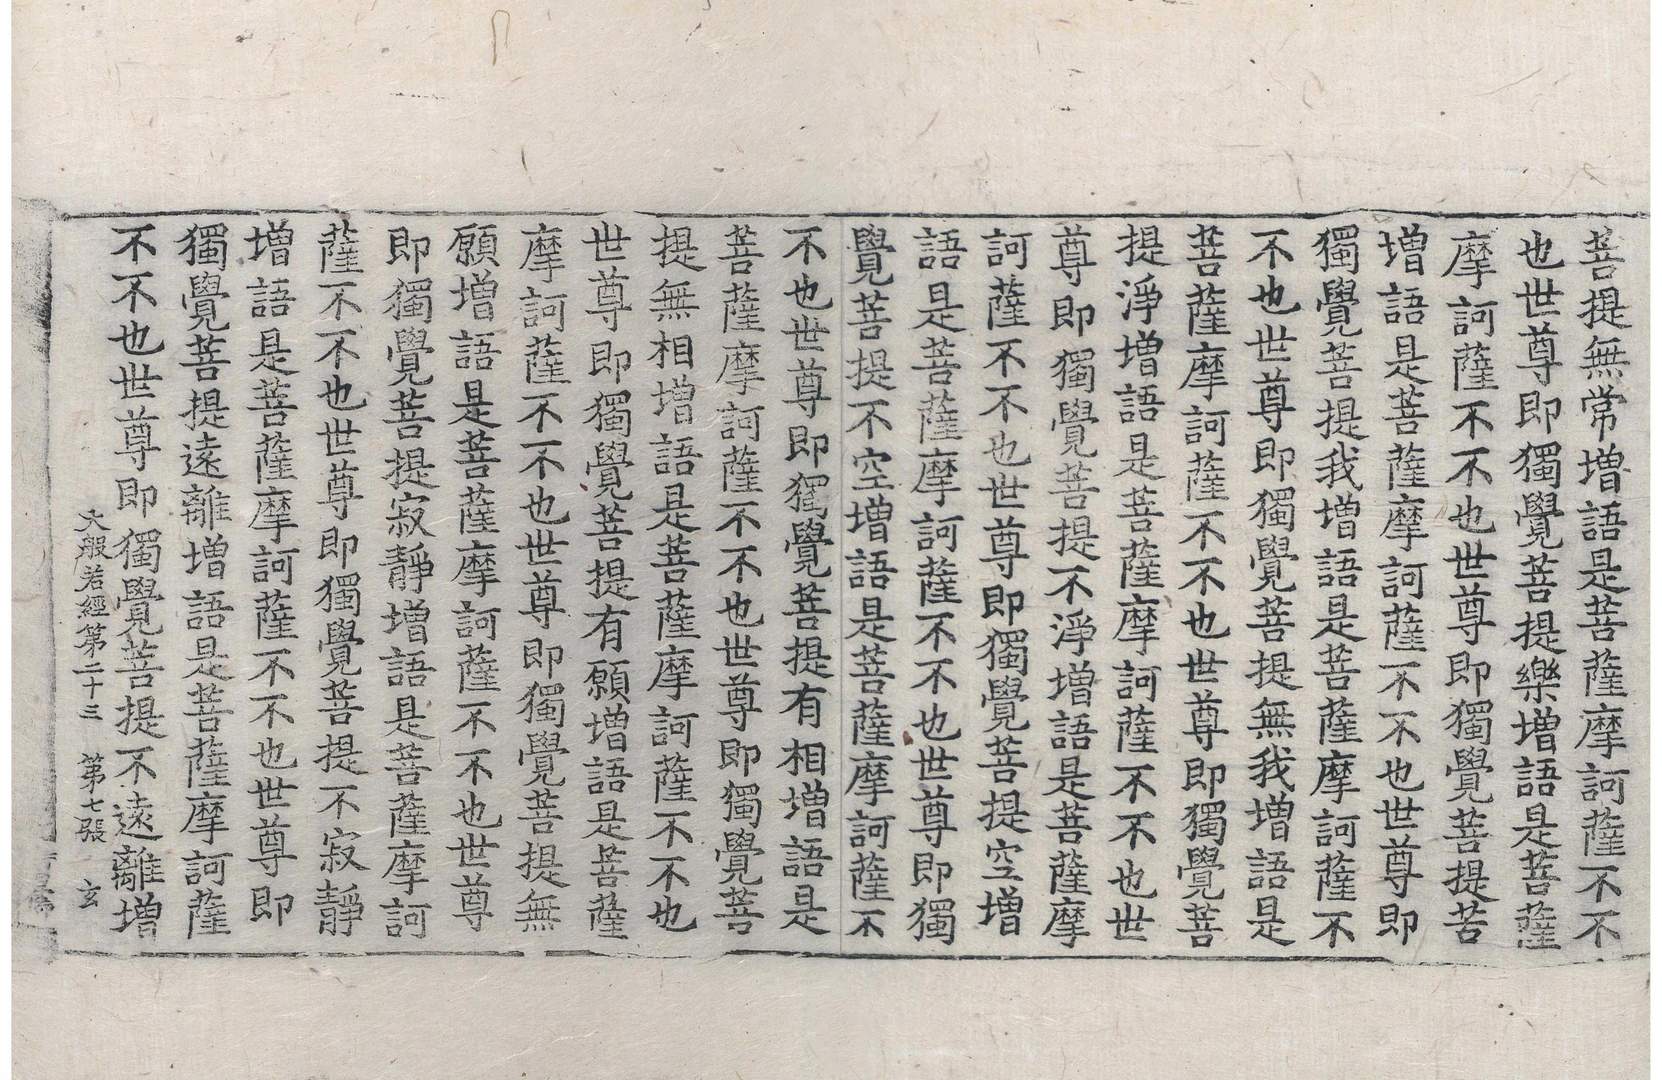 菩提無常增語是菩薩摩訶薩不不
也世尊即獨覺菩提樂增語是菩薩
摩訶薩不不也世尊即獨覺菩提苦
增語是菩薩摩訶薩不不也世尊即
獨覺菩提我增語是菩薩摩訶薩不
不也世尊即獨覺菩提無我增語是
菩薩摩訶薩不不也世尊即獨覺菩
提淨增語是菩薩摩訶薩不不也世
尊即獨覺菩提不淨增語是菩薩摩
訶薩不不也世尊即獨覺菩提空增
語是菩薩摩訶薩不不也世尊即獨
覺菩提不空增語是菩薩摩訶薩不
不也世尊即獨覺菩提有相增語是
菩薩摩訶薩不不也世尊即獨覺菩
提無相增語是菩薩摩訶薩不不也
世尊即獨覺菩提有願增語是菩薩
摩訶薩不不也世尊即獨覺菩提無
願增語是菩薩摩訶薩不不也世尊
即獨覺菩提寂靜增語是菩薩摩訶
薩不不也世尊即獨覺菩提不寂靜
增語是菩薩摩訶薩不不也世尊即
獨覺菩提遠離增語是菩薩摩訶薩
不不也世尊即獨覺菩提不遠離增
大般若經第二十三 第七張 玄